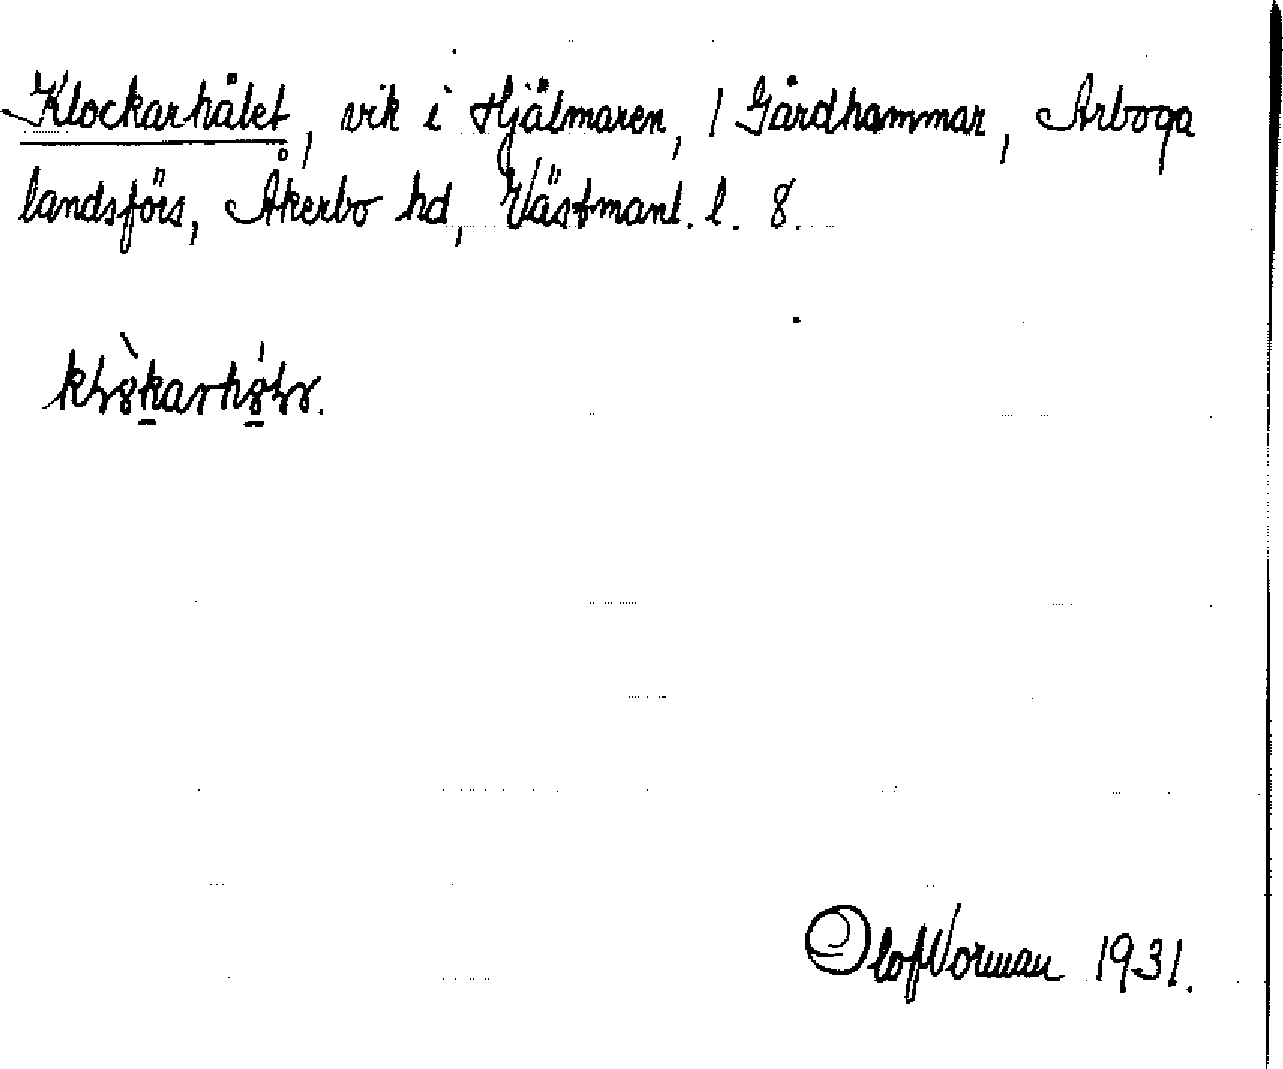 Klockarhålet, vik i Hjälmaren, 1 Gårdhammar, Arboga
landsförs, Åkerbo hd, Västmanl. l. 8.
Olof Norman 1931.